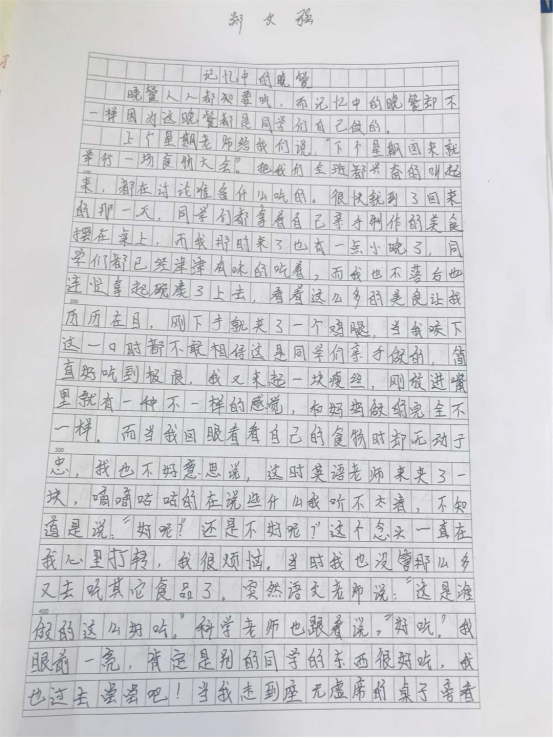 郑文强
记忆中的晚餐
晚餐人人都知要吃，而记忆中的晚餐却不
一样因为这晚餐都是同学们自己做的。
上个星期老师给我们说，"下个星期回来就
举行一场食物大会"。把我们全班都兴奋的叫起
来，都在讨论谁拿什么吃的。很快就到了回来
的那一天，同学们都拿着自己亲手制作的美食
摆在桌上，而我那时来了也有一点小晚了，同
学们都已经津津有味的吃着，而我也不落后也
连忙拿起碗凑了上去，看着这么多的美食让我
历历在目，刚下手就夹了一个鸡腿，当我咬下
这一口时都不敢相信这是同学们亲手做的，简
直好吃到极限，我又夹起一块
刚放进嘴
里就有一种不一样的感觉，和妈妈做的完全不
一样。而当我回眼看看自己的食物时却无动于
忠，我也不好意思说，这时英语老师来夹了一
块，嘀嘀咕咕的在说些什么我听不太清，不知
道是说："好呢？还是不好呢？"这个念头一直在
我心里打转，我很烦恼。当时我也没管那么多
又去吃其它食品了。突然语文老师说："这是谁
做的这么好吃。"科学老师也跟着说，"好吃"。我
眼前一亮，肯定是别的同学的东西很好吃，我
也过去尝尝吧！当我走到座无虚席的桌子旁看